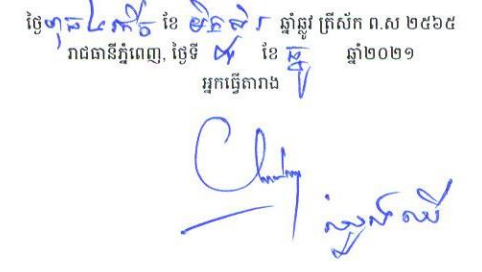 ថ្ងៃពុធ ៤កើត ខែ មិគសិរ ឆ្នាំឆ្លូវ ត្រីស័ក ព.ស ២៥៦៥
រាជធានីភ្នំពេញ, ថ្ងៃទី ០៨ ខែ ធ្នូ ឆ្នាំ២០២១
អ្នកធ្វើតារាង